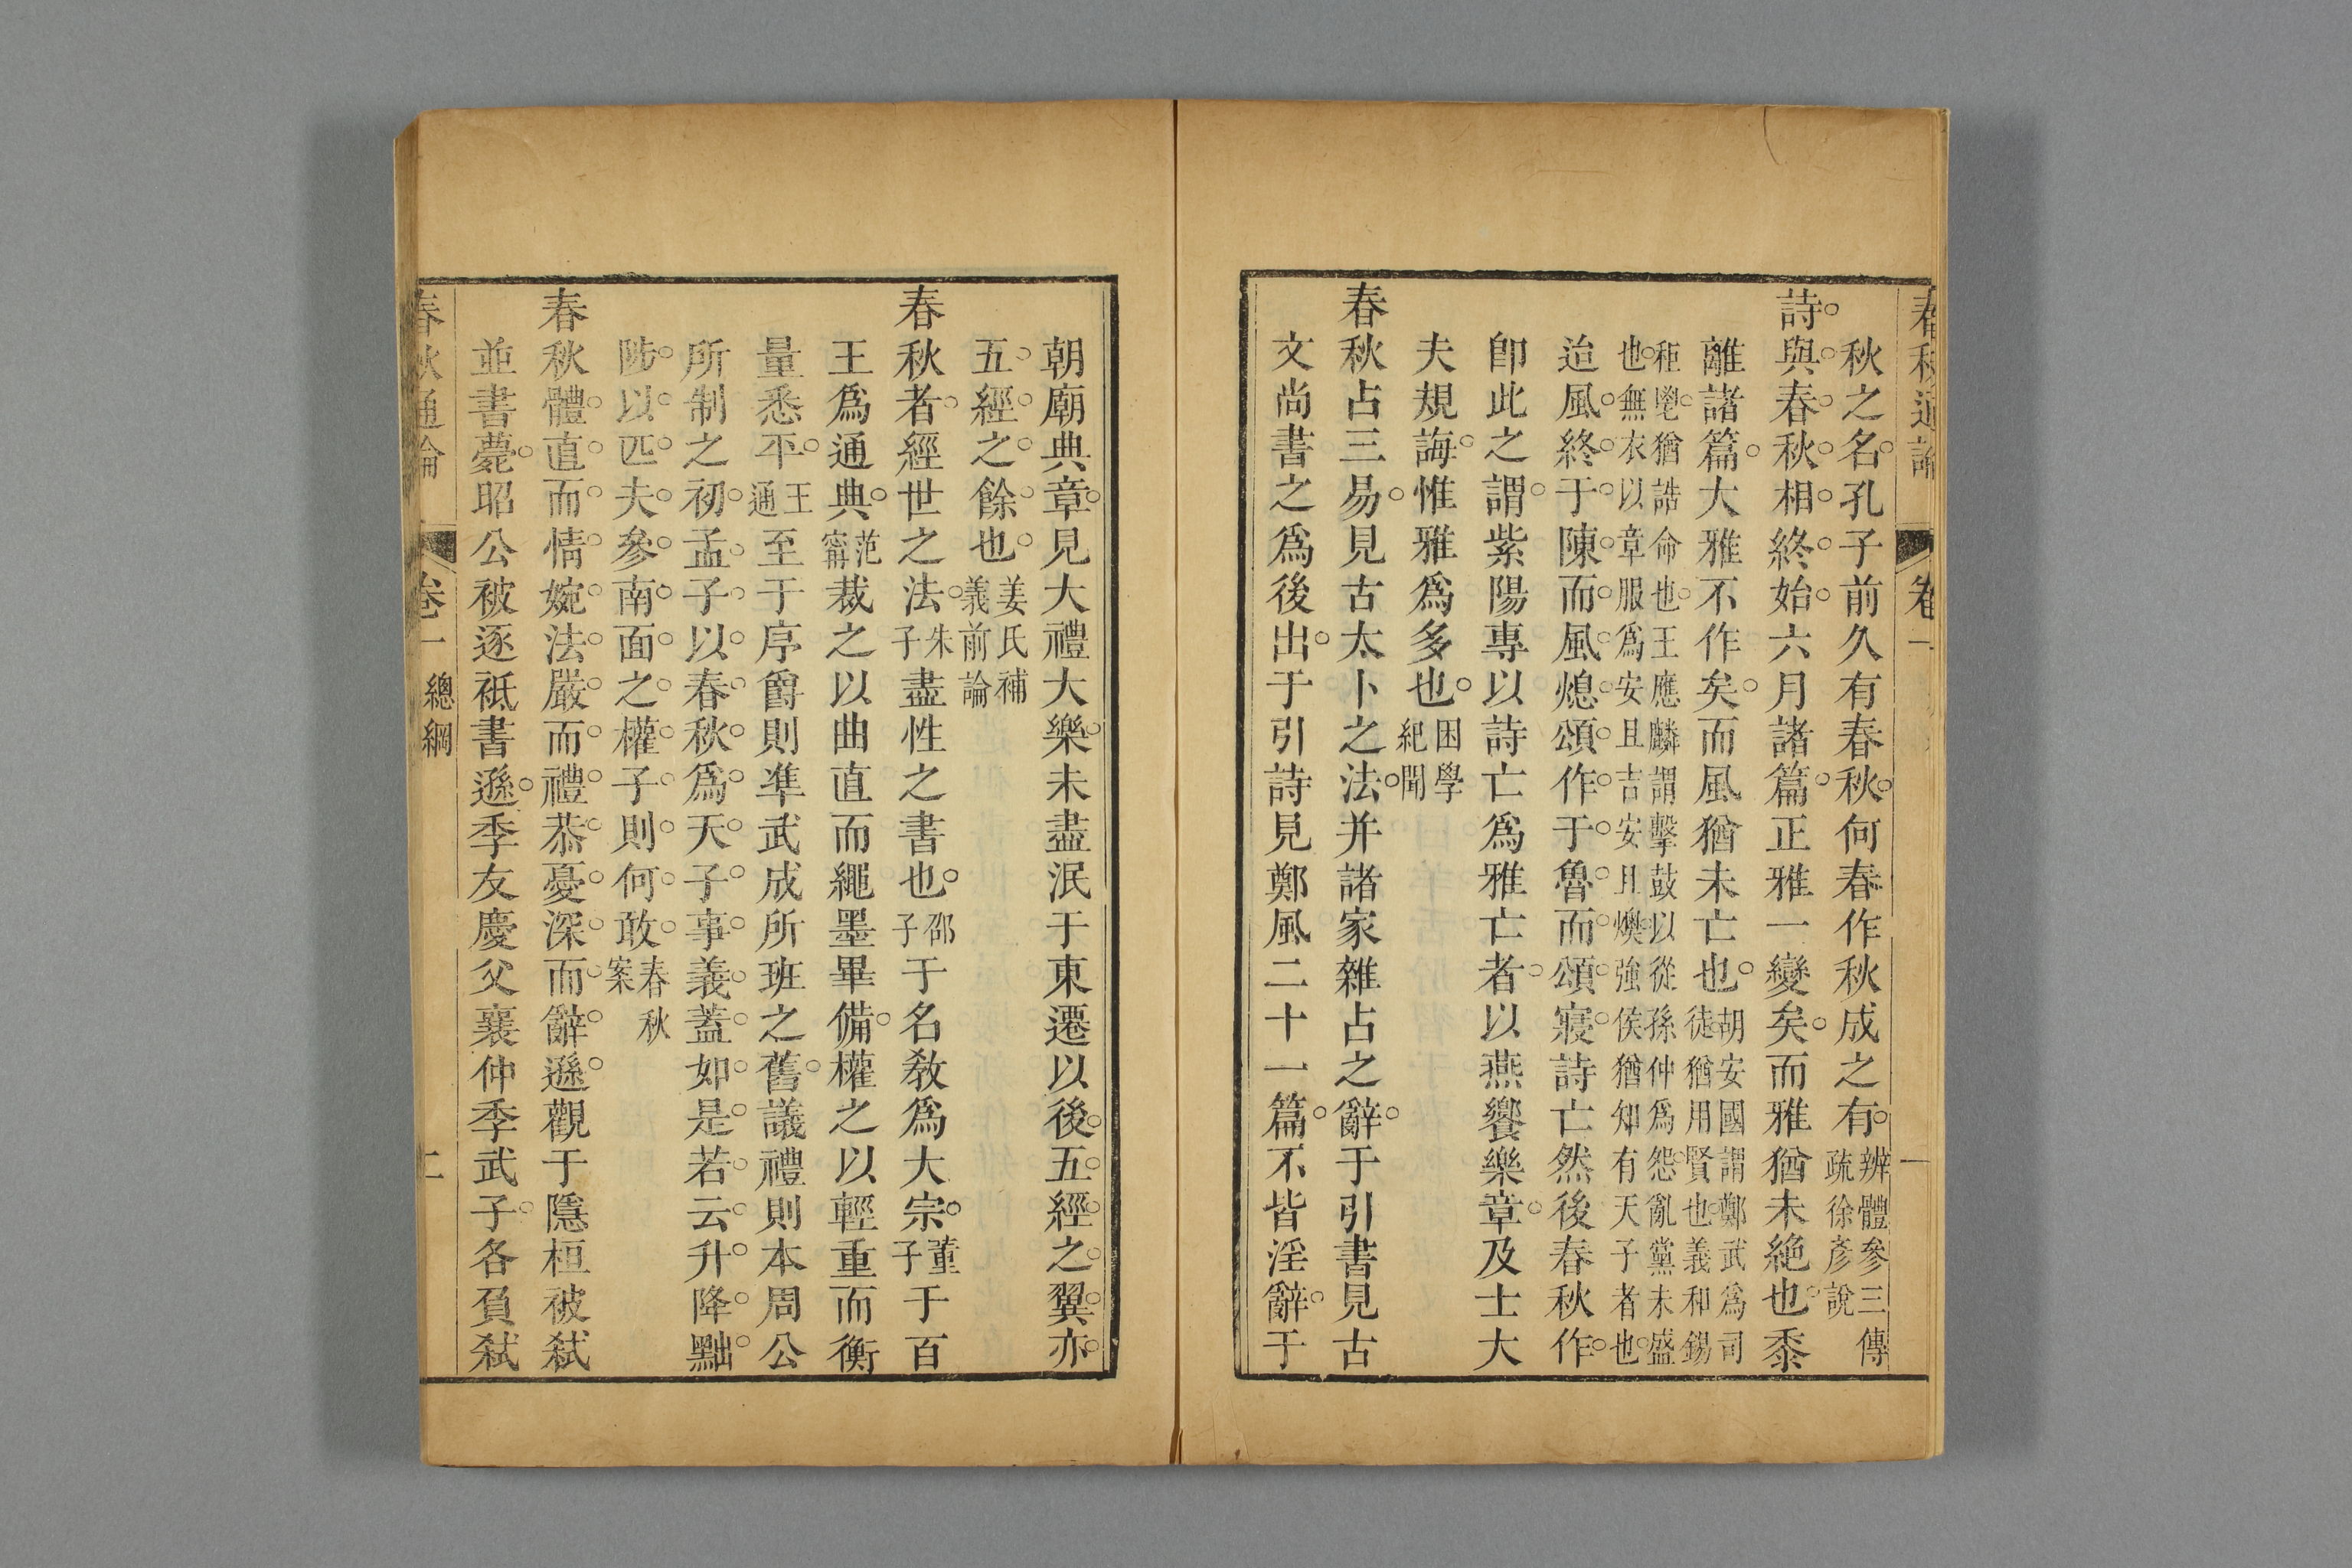 春秋通論 卷一 一
秋之名孔子前久有春秋何春作秋成之有辨體參三傳疏徐彥說
詩與春秋相終始六月諸篇正雅一變矣而雅猶未絕也黍
離諸篇大雅不作矣而風猶未亡也胡安國謂鄭武爲司徒猶用賢也義和錫
秬鬯猶誥命也王應麟謂擊鼓以從孫仲爲怨亂黨未盛也無衣以章服爲安且吉安且燠強侯猶知有天子者也
迨風終于陳而風熄頌作于魯而頌寢詩亡然後春秋作
卽此之謂紫陽專以詩亡爲雅亡者以燕饗樂章及士大
夫規誨惟雅爲多也困學紀聞
春秋占三易見古太卜之法并諸家雜占之辭于引書見古
文尚書之爲後出于引詩見鄭風二十一篇不皆淫辭于
朝廟典章見大禮大樂未盡泯于東遷以後五經之翼亦
五經之餘也姜氏補義前論
春秋者經世之法朱子盡性之書也邵子于名敎爲大宗董子于百
王爲通典范甯裁之以曲直而繩墨畢備權之以輕重而衡
量悉平王通至于序爵則準武成所班之舊議禮則本周公
所制之初孟子以春秋爲天子事義蓋如是若云升降黜
陟以匹夫參南面之權子則何敢春秋案
春秋體直而情婉法嚴而禮恭憂深而辭遜觀于隱桓被弒
並書薨昭公被逐祗書遜季友慶父襄仲季武子各負弒
春秋通論 卷一 總綱 二